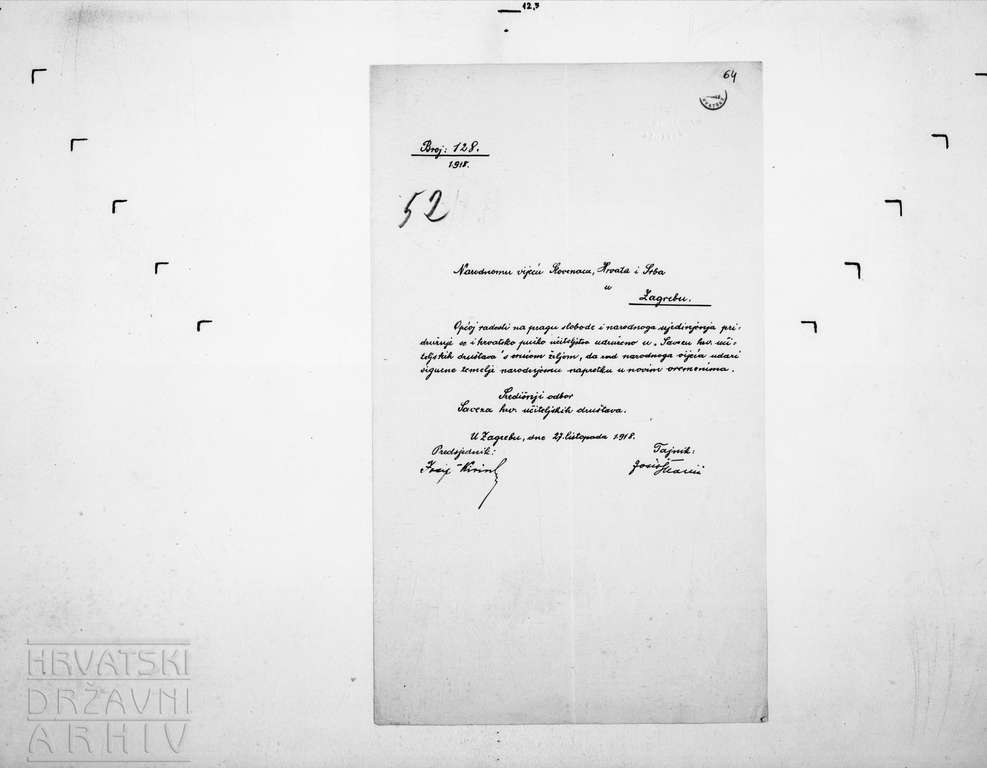 12,3
64
Broj: 128.
1918.
52
Narodnomu vijeću Slovenaca, Hrvata i Srba
u
Zagrebu.
Općoj radosti na pragu slobode i narodnoga ujedinjenja pri-
družuje se i hrvatsko pučko učiteljstvo udruženo u „Savezu hrv. uči-
teljskih društava" s vrućom željom, da rad narodnoga vijeća udari
sigurne temelje narodnjemu napretku u novim vremenima.
Središnji odbor
Saveza hrv. učiteljskih društava.
U Zagrebu, dne 27. listopada 1918.
Predsjednik:
Tajnik:
Josip
Josip
HRVATSKI
DRŽAVNI
ARHIV